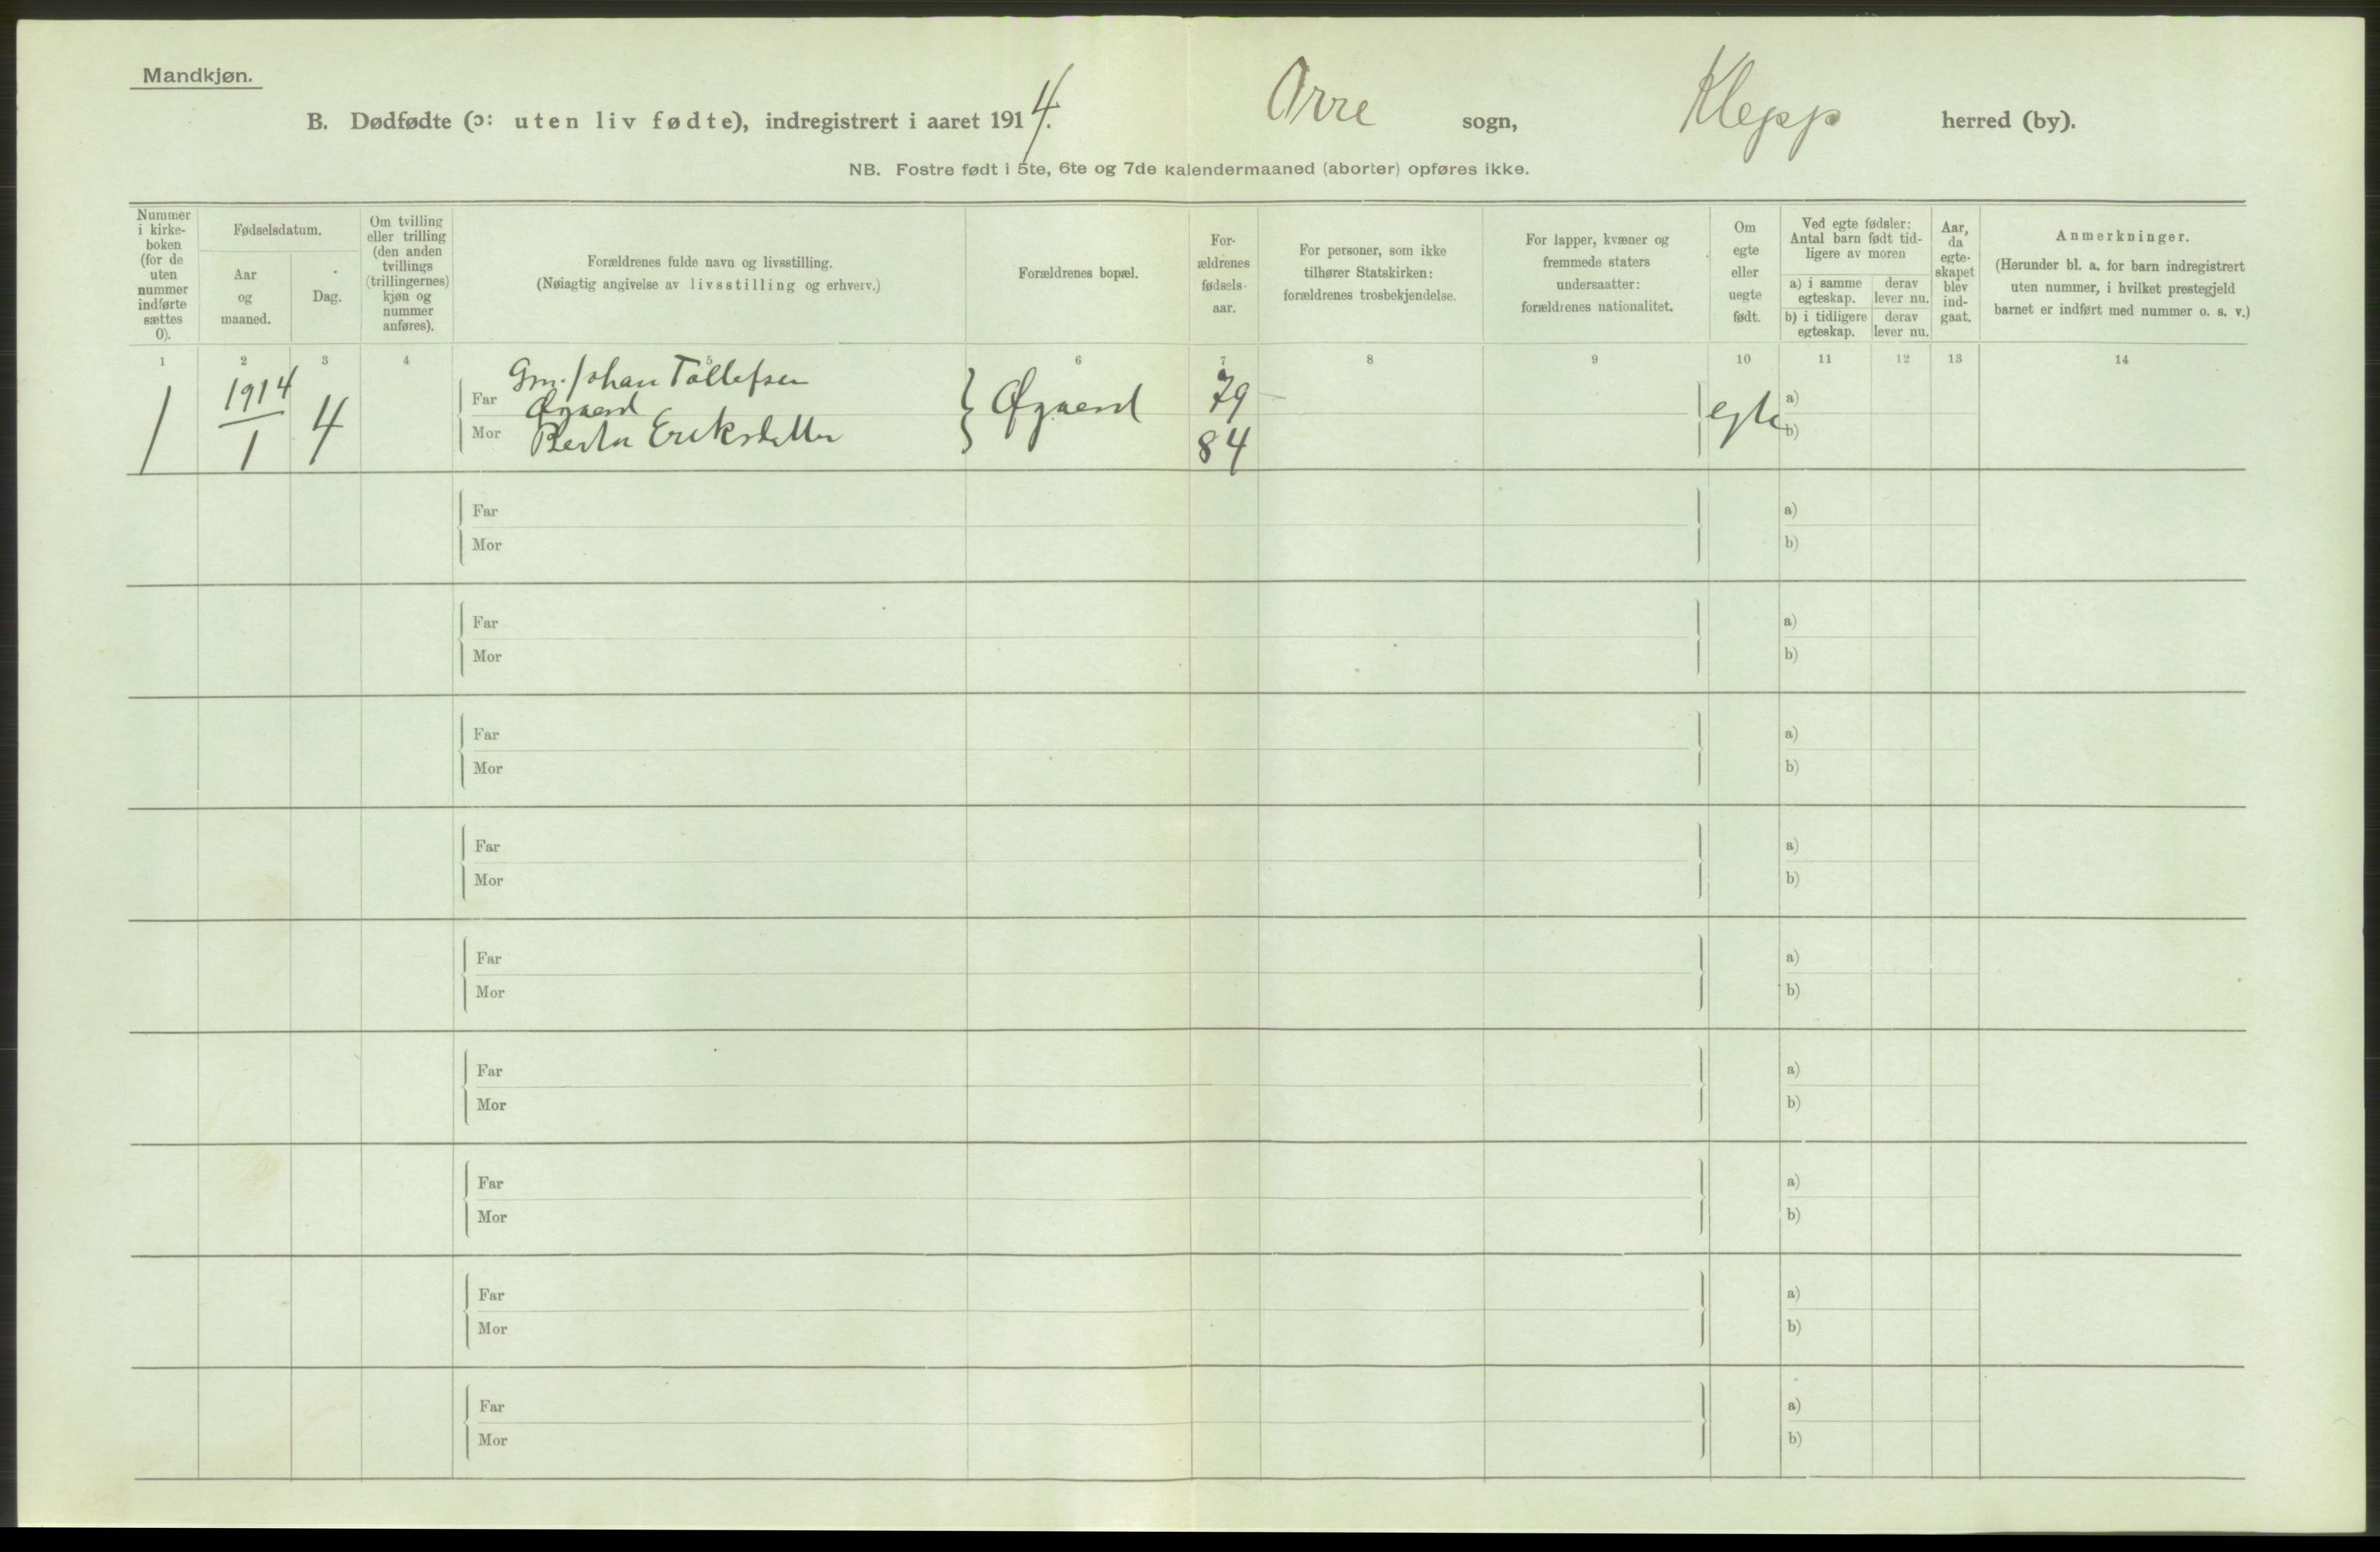 Mandkjøn.
B. Dødfødte (ɔ: uten liv fødte), indregistrert i aaret 1914. Orre sogn, Klepp herred (by).
NB. Fostre født i 5te, 6te og 7de kalendermaaned (aborter) opføres ikke.
Nummer
i kirke-
boken
(for de
uten
nummer
indførte
sættes
0).
Fødselsdatum.
Aar
og
maaned.
Dag.
Om tvilling
eller trilling
(den anden
tvillings
(trillingernes)
kjøn og
nummer
anføres).
Forældrenes fulde navn og livsstilling.
(Nøiagtig angivelse av livsstilling og erhverv.)
Forældrenes bopæl.
For-
ældrenes
fødsels-
aar.
For personer, som ikke
tilhører Statskirken:
forældrenes trosbekjendelse.
For lapper, kvæner og
fremmede staters
undersaatter:
forældrenes nationalitet.
Om
egte
eller
uegte
født.
Ved egte fødsler:
Antal barn født tid-
ligere av moren
a) i samme
egteskap.
derav
lever nu.
b) i tidligere
egteskap.
derav
lever nu.
Aar,
da
egte-
skapet
blev
ind-
gaat.
Anmerkninger.
(Herunder bl. a. for barn indregistrert
uten nummer, i hvilket prestegjeld
barnet er indført med nummer o. s. v.)
1 2 3 4 5 6 7 8 9 10 11 12 13 14
1 1914 1 4
Far Gm. Johan Tollefsen
Øgaard
Mor Berta Eriksdatter
Øgaard
79
84
egte
a)
b)
Far a)
Mor b)
Far a)
Mor b)
Far a)
Mor b)
Far a)
Mor b)
Far a)
Mor b)
Far a)
Mor b)
Far a)
Mor b)
Far a)
Mor b)
Far a)
Mor b)